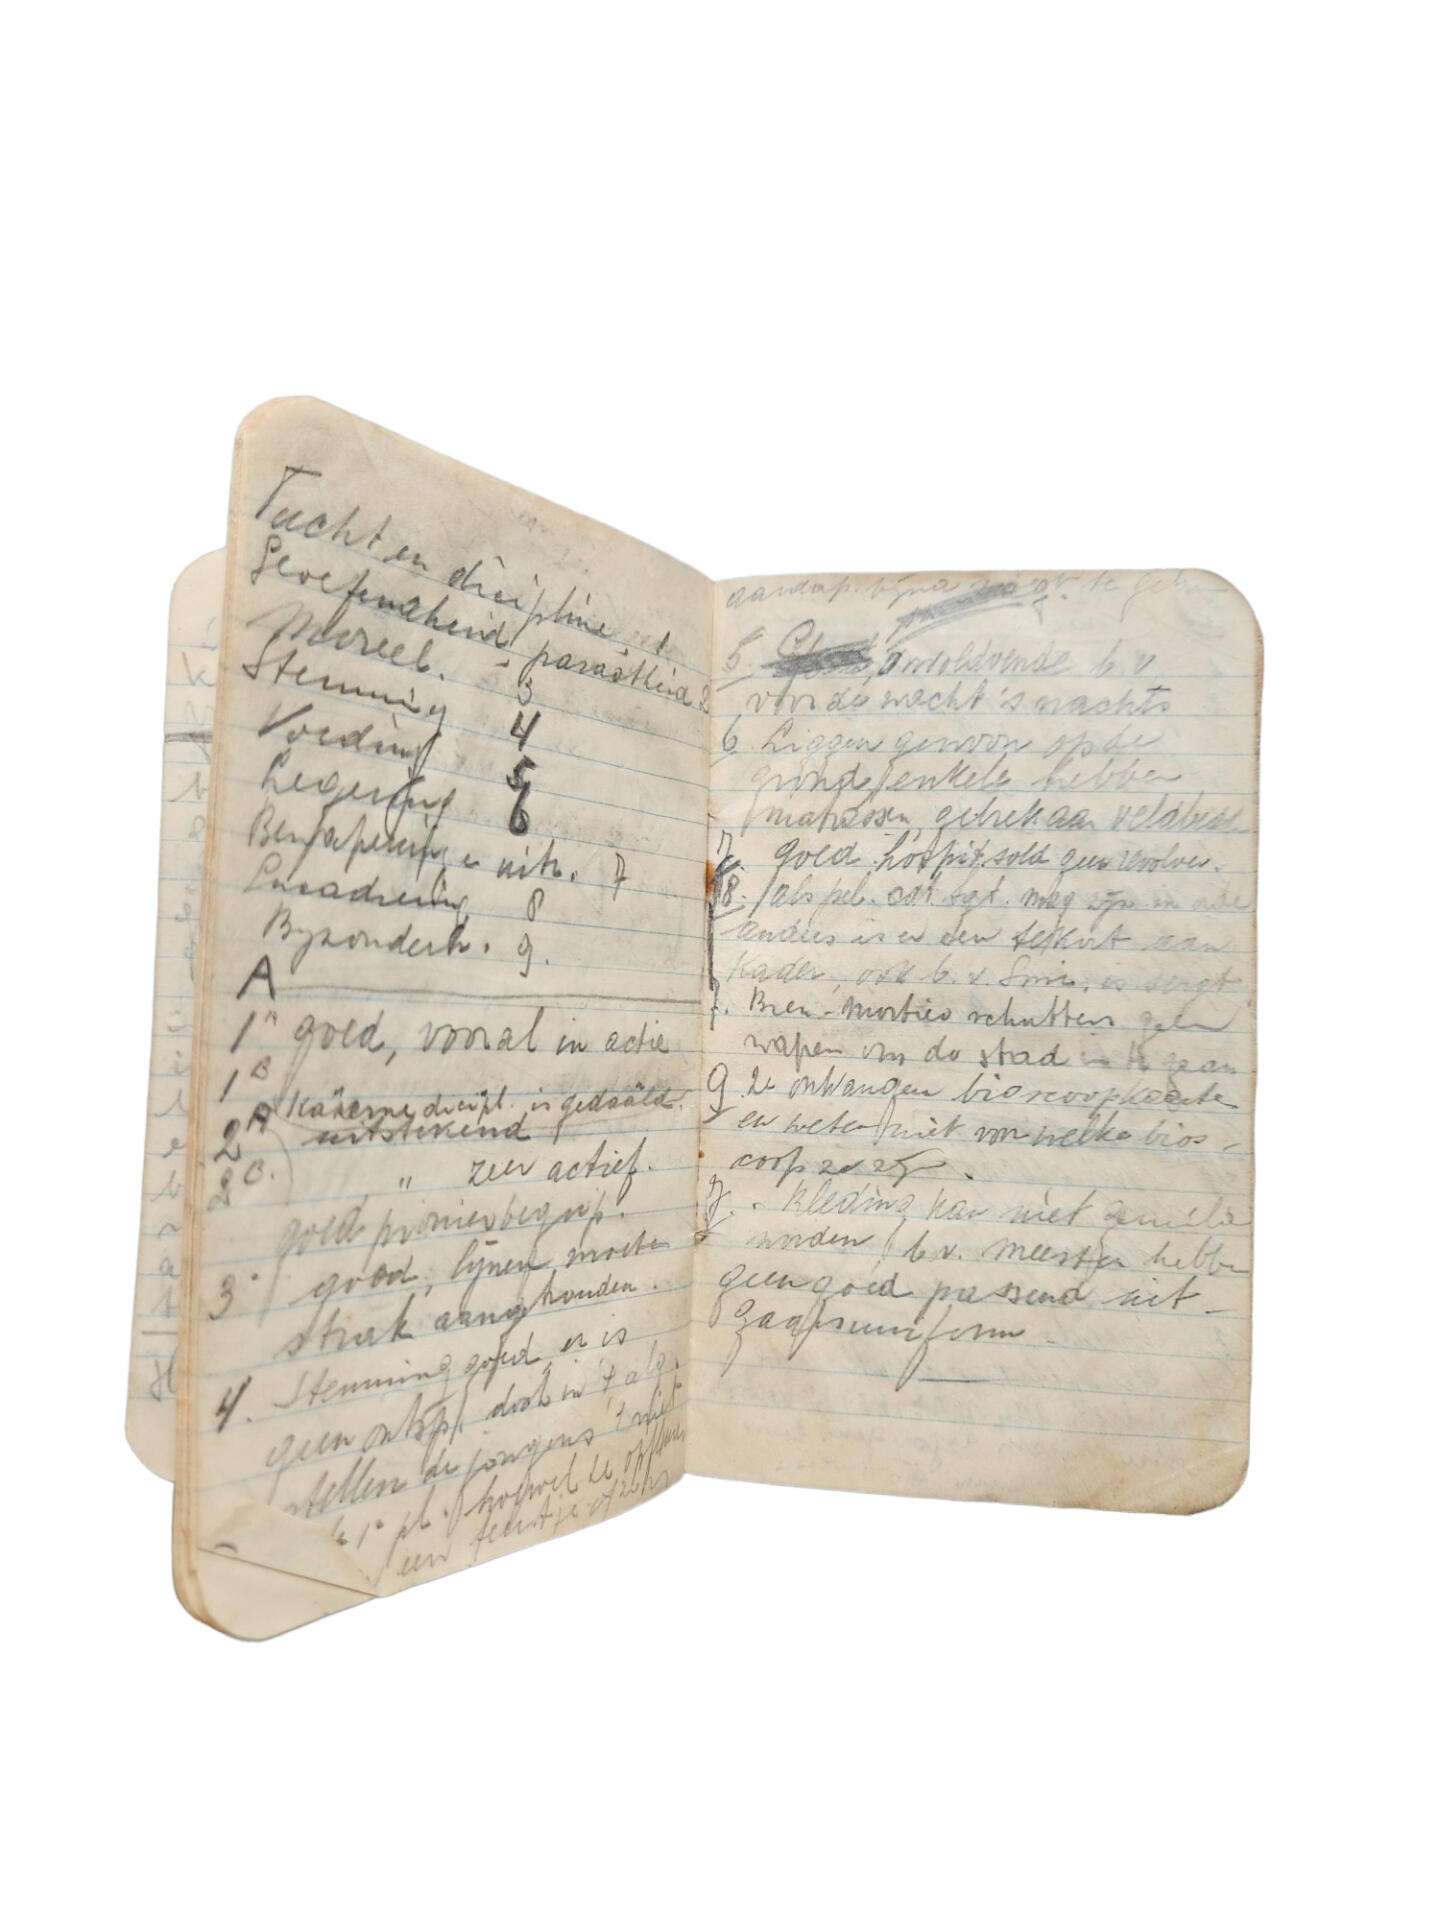 Tucht en dicipline 1
Geoefendheid, paraatheid 2
Moreel. - 3
Stemming 4
Voeding 5
Legering 6
Bewapening en uitr. 7
Encadrering 8
Byzonderh. 9.
A
1A goed, vooral in actie
1B Kazerne dicipl. is gedaald.
2A uitstekend
2B. " zeer actief.
goed pioniersbegrip.
3. goed, lynen moeten
strak aangehouden.
4. Stemming goed er is
geen ontsp. doch in 't alg.
stellen de jongens 't niet
pl. hoewel ze
een feestje
aardap. byna te
5. onvoldoende b.v
voor de wacht 's nachts
6. Liggen gewoon op de
grond, enkele hebben
matrassen, gebrek aan veldbed
7. goed. hospit. sold geen revolver.
8. als pel. sgt. mag zijn in orde
anders is er een tekort aan
Kader, ook b.v. is sergt.
7. Bren-mortier schutters geen
wapen om de stad in te gaan
9. Ze ontvangen bioscoopkaarten
en weten niet voor welke bios-
coop ze zyn.
7. - Kleding kan niet geruild
worden, b.v. meesten hebben
geen goed passend uit-
gaansuniform